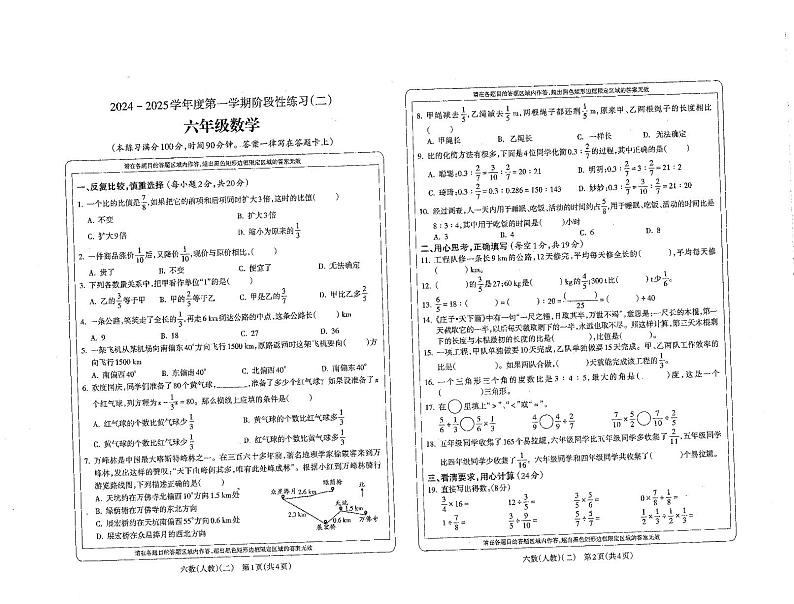 2024-2025学年度第一学期阶段性练习(二)
六年级数学
(本练习满分100分,时间90分钟。答案一律写在答题卡上)
请在各题目的答题区域内作答,超出黑色矩形边框限定区域的答案无效
一、反复比较,慎重选择(每小题2分,共20分)
1. 一个比的比值是7/8,如果把它的前项和后项同时扩大3倍,这时的比值( )
A. 不变 B. 扩大3倍
C. 扩大9倍 D. 缩小为原来的1/3
2. 一件商品涨价1/10后,又降价1/10,现价与原价相比,( )
A. 贵了 B. 不变 C. 便宜了 D. 无法确定
3. 下列各数量关系中,把甲看作单位“1”的是( )
A. 乙的3/5等于甲 B. 甲的2/5等于乙 C. 甲是乙的3/7 D. 甲比乙多2/5
4. 一条公路,笑笑走了全长的1/3,再走6 km到达公路的中点,这条公路长( ) km
A. 9 B. 18 C. 27 D. 36
5. 一架飞机从某机场向南偏东40°方向飞行1500 km,原路返回时这架飞机要向( )方
向飞行1500 km
A. 南偏西40° B. 东偏南40° C. 北偏西40° D. 南偏东40°
6. 欢度国庆,同学们准备了80个黄气球,________,准备了多少个红气球?如果设准备了x
个红气球,列方程为x-1/3x=80。那么横线上应填的条件是( )
A. 红气球的个数比黄气球少1/3 B. 黄气球的个数比红气球多1/3
C. 黄气球的个数比红气球少1/3 D. 红气球的个数比黄气球多1/3
7. 万峰林是中国最大喀斯特峰林之一。在三百六十多年前,著名地理学家徐霞客来到万
峰林,发出这样的赞叹:“天下山峰何其多,唯有此处峰成林”。根据小红到万峰林骑行
游览路线图,下列描述正确的是( )
A. 天坑约在万佛寺北偏西10°方向1.5 km处
B. 绿荫塘在万佛寺的东北方向
C. 展宏桥约在天坑南偏西55°方向0.6 km处
D. 展宏桥在众星捧月的西北方向
绿荫塘
北
众星捧月 2.6 km
天坑
1.5 km
2.3 km
0.6 km 万佛寺
展宏桥
请在各题目的答题区域内作答,超出黑色矩形边框限定区域的答案无效
六数(人教)(二) 第1页(共4页)
请在各题目的答题区域内作答,超出黑色矩形边框限定区域的答案无效
8. 甲绳减去1/5,乙绳减去1/5 m,两根绳子都还剩1/5 m,原来甲、乙两根绳子的长度相比
( )
A. 甲绳长 B. 乙绳长 C. 一样长 D. 无法确定
9. 比的化简方法有很多,下面是4位同学化简0.3∶2/7的过程,其中正确的是( )
A. 聪聪:0.3∶2/7=3/10∶2/7=20∶21 B. 明明:0.3∶2/7=3∶2/7=21∶2
C. 琦琦:0.3∶2/7=0.3∶0.286=150∶143 D. 妙妙:0.3∶2/7=3/10∶2/7=21∶20
10. 经过调查,人一天内用于睡眠、吃饭、活动的时间约占5/8,用于睡眠、吃饭、活动的时间比是
8∶3∶4,其中用于吃饭的时间是( )小时
A. 3 B. 4 C. 6 D. 8
二、用心思考,正确填写(每空1分,共19分)
11. 工程队修一条长9 km的公路,12天修完,平均每天修全长的( ),平均每天修
( ) km。
12. ( )的3/5是27;60 kg是( ) kg的4/5;300 t比( ) t少1/6。
13. 6/5=18∶( )=( )∶20=( )/25=( )÷40
14. 《庄子·天下篇》中有一句“一尺之锤,日取其半,万世不竭”,意思是:一尺长的木棍,第一
天截取它的一半,以后每天截取剩下的一半,永远也取不尽。照这样计算,第三天木棍剩
下的长度与木棍最初的长度的比是( ),比值是( )。
15. 一项工程,甲队单独做要10天完成,乙队单独做要15天完成。甲、乙两队工作效率的
比是( )。如果两队合做,( )天就能完成该工程的1/3。
16. 一个三角形三个角的度数比是3∶4∶5,最大的角是( )度,这是一个
( )三角形。
17. 在○里填上“>”、“<”或“=”。
5/6÷1/3○5/6×1/3 4/9○4/9÷2/7 7/10×5/2○7/10÷2/5
18. 五年级同学收集了165个易拉罐,六年级同学比五年级同学多收集了2/11,五年级同学
比四年级同学少收集了1/16。六年级同学和四年级同学共收集了( )个易拉罐。
三、看清要求,用心计算(24分)
19. 直接写出得数。(8分)
3/4×16= 12÷3/5= 3/5×5/6= 0×7/8+1/8=
1÷7/8= 3/5÷9/10= 5/7÷5/7= 1/2×1/3÷1/2×1/3=
请在各题目的答题区域内作答,超出黑色矩形边框限定区域的答案无效
六数(人教)(二) 第2页(共4页)